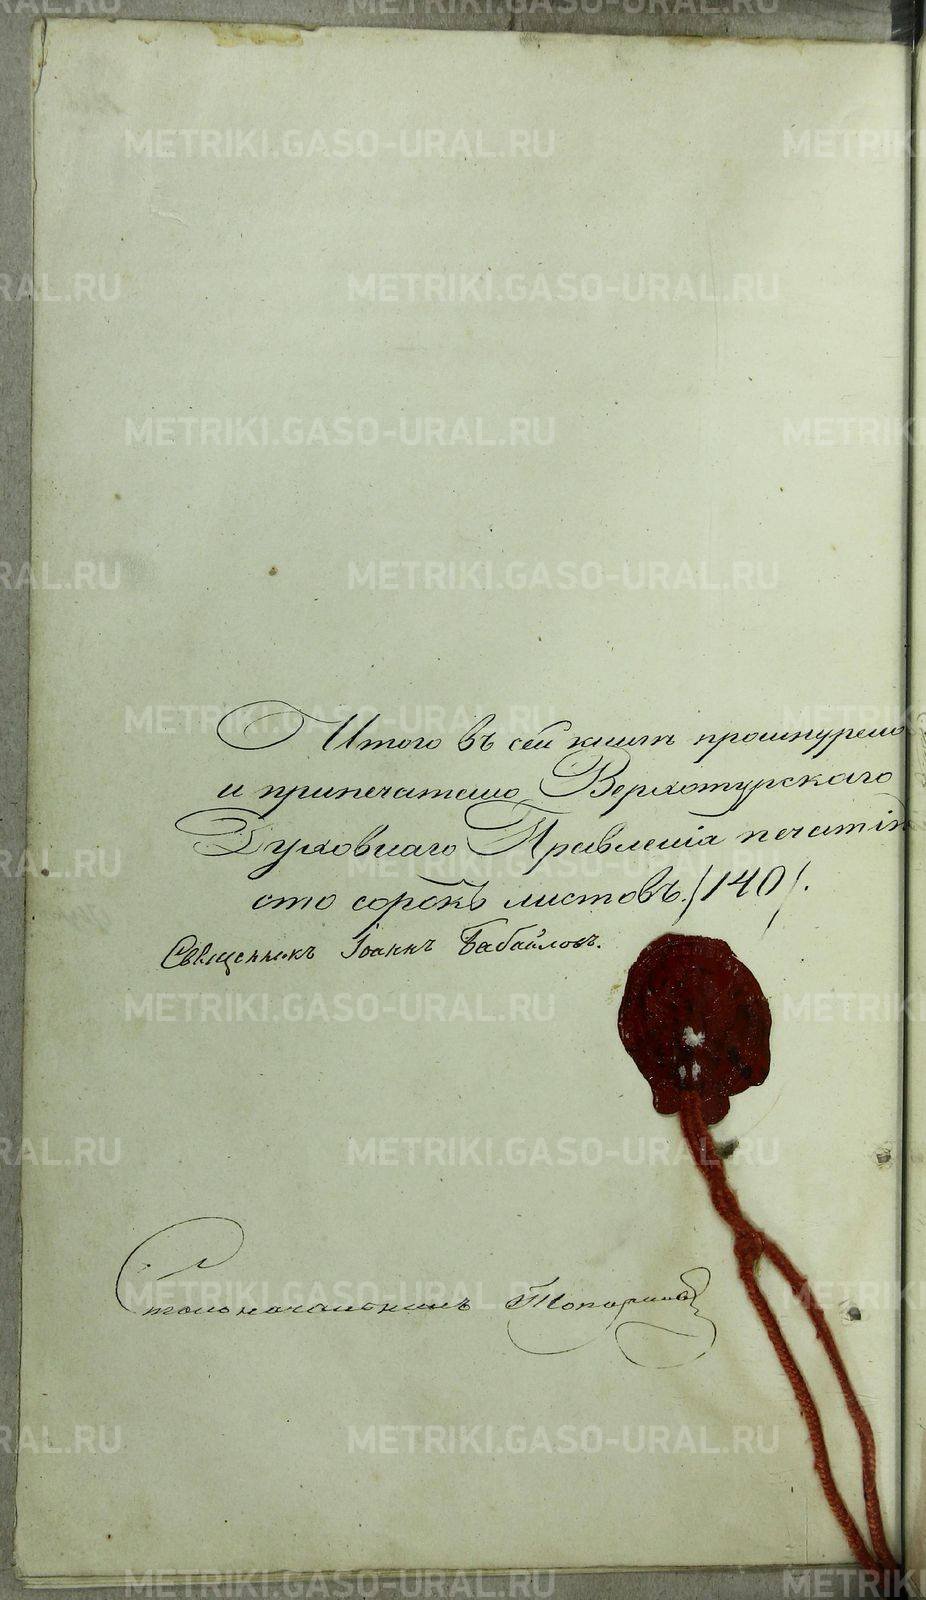 Итого въ сей книгѣ прошнурено
и припечатано Верхотурскаго
Духовнаго Правленія печатію
сто сорокъ листовъ. /140/.
Священникъ Іоаннъ Бабайловъ.
Столоначальникъ Топорковъ
METRIKI.GASO-URAL.RU